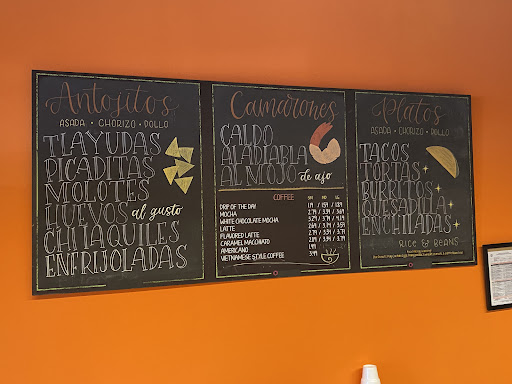 Antojitos
ASADA · CHORIZO · POLLO
TLAYUDAS
PICADITAS
MOLOTES
HUEVOS al gusto
CHILAQUILES
ENFRIJOLADAS
Camarones
CALDO
ALADIABLA
AL MOJO de ajo
COFFEE SM MD LG
DRIP OF THE DAY
MOCHA
WHITE CHOCOLATE MOCHA
LATTE
FLAVORED LATTE
CARAMEL MACCHIATO
AMERICANO
VIETNAMESE STYLE COFFEE
Platos
ASADA · CHORIZO · POLLO
TACOS
TORTAS
BURRITOS
QUESADILLA
ENCHILADAS
RICE & BEANS